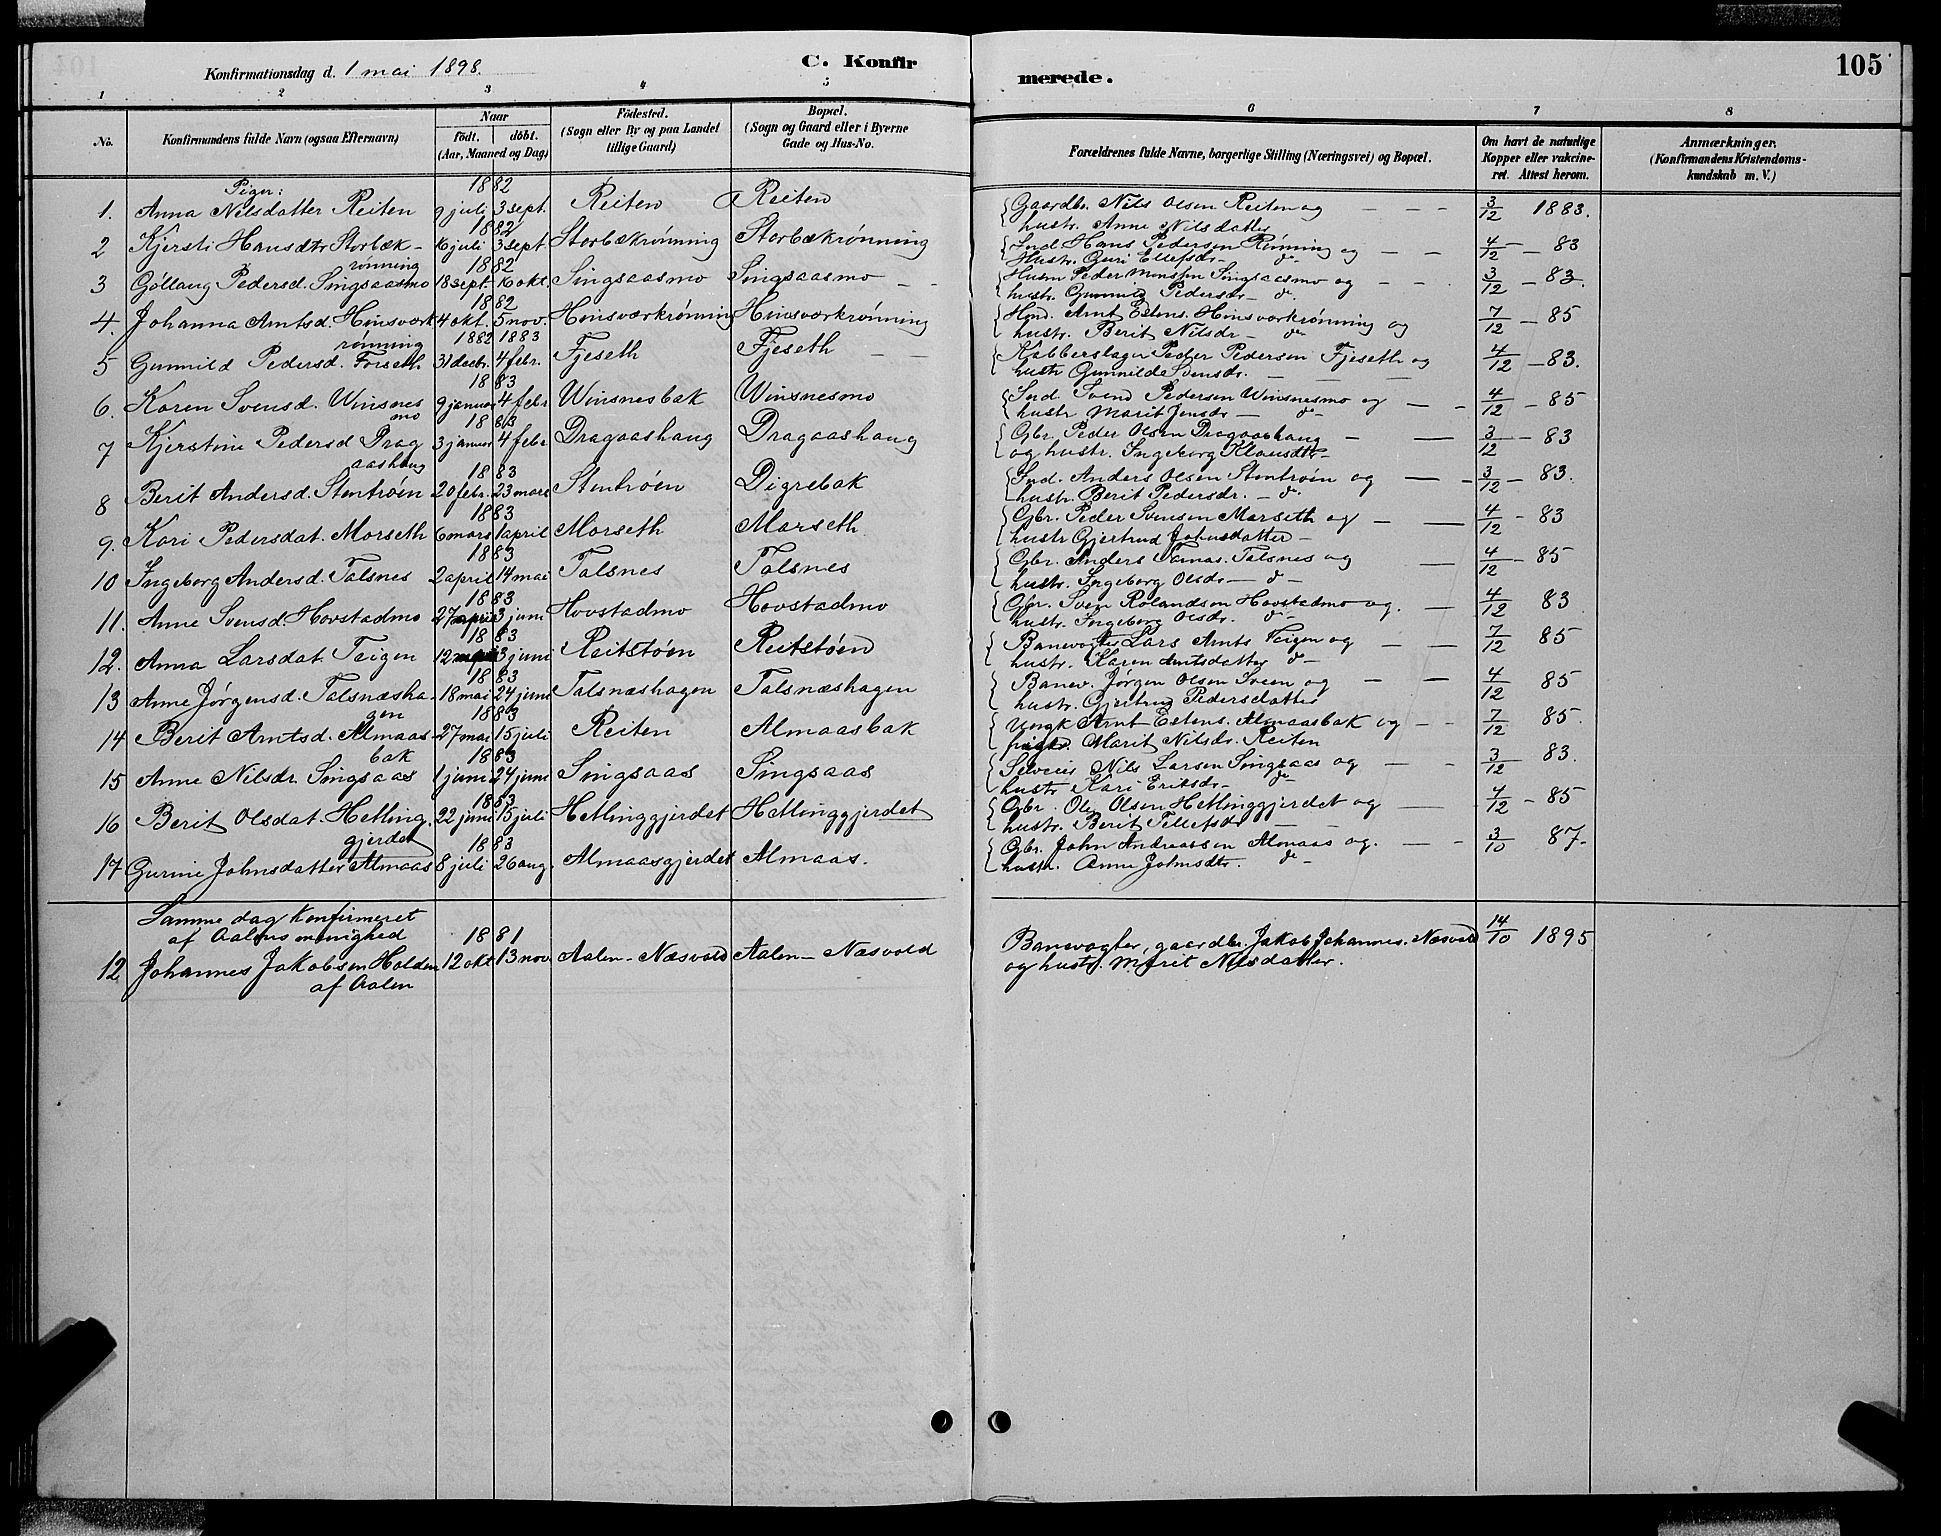 105
Konfirmationsdag d. 1 mai 1898.
C. Konfirmerede.
1 2 3 4 5 6 7 8
No.
Konfirmandens fulde Navn (ogsaa Efternavn)
Naar
födt. döbt.
(Aar, Maaned og Dag)
Födested.
(Sogn eller By og paa Landet
tillige Gaard)
Bopæl.
(Sogn og Gaard eller i Byerne
Gade og Hus-No.
Forældrenes fulde Navne, borgerlige Stilling (Næringsvei) og Bopæl.
Om havt de naturlige
Kopper eller vakcine-
ret. Attest herom.
Anmærkninger.
(Konfirmandens Kristendoms-
kundskab m. V.)
Piger: 1882
1. Anna Nilsdatter Reiten 9 juli 3 sept. Reiten Reiten Gaardbr. Nils Olsen Reiten og — — — 3/12 1883.
hustr. Anne Nilsdatter
1882
2 Kjersti Hansdtr Storbæk- 16 juli 3 sept Storbækrønning Storbækrønning Ind Hans Pedersen Rønning og — — 4/12 — 83
rønning Hustr. Guri Ellefsdr — do —
1882
3 Göllaug Pedersd. Singsaasmo 18 sept. 16 okt. Singsaasmo Singsaasmo — — Husm Peder Monssen Singsaasmo og — — 3/12 — 83.
hustr. Gunnild Pedersdr — do.
1882
4. Johanna Arntsd. Hinsværk 4 okt. 5 nov. Hinsværkrønning Hinsværkrønning Arnt Estens. Hinsværkrønning og 7/12 — 85
rønning hustr. Berit Nilsdr — do
1882 1883
5 Gunnild Pedersd. Forseth 31 decbr. 4 febr. Fjeseth Fjeseth — — Kobberslager Peder Pedersen Fjeseth og 4/12 — 83.
hustr Gunnilde Svensdr. — — —
1883
6. Karen Svensd. Winsnes 9 januar 4 febr Winsnesbak Winsnesmo Ind Svend Pedersen Winsnesmo og — — 4/12 — 85
mo hustr Marit Jensdr — do —
1883
7 Kjerstine Pedersd Drag 3 januar 4 febr Dragaashaug Dragaashaug Gbr. Peder Olsen Dragaashaug — — 3/12 — 83
aashaug og hustr. Ingeborg Klausdtr —
1883
8 Berit Andersd. Stentrøen 20 febr. 23 mars Stentrøen Digrebak Ind. Anders Olsen Stentrøen og — — 3/12 — 83.
hustr. Berit Pedersdr. — do.
1883
9. Kari Pedersdat. Morseth 6 mars 1 april Morseth Morseth Gbr. Peder Svensen Morseth og — — 4/12 — 83
hustr Gjertrud Johnsdatter —
1883
10 Ingeborg Andersd. Talsnes 2 april 14 mai Talsnes Talsnes Gbr. Anders Talsnes og — 4/12 — 85
hustr. Ingeborg Olsdr — do —
1883
11. Anne Svensd. Hovstadmo 27 april 3 juni Hovstadmo Hovstadmo Gbr. Sven Rolandsen Hovstadmo og. — 4/12 83
hustr. Ingeborg Olsdr. do —
1883
12. Anna Larsdat. Teigen 12 3 juni Reitstøen Reitstøen Banevogter Lars Arnts Teigen og — — 7/12 85
hustr. Karen Arntsdatter do —
1883
13 Anne Jørgensd. Talsnæsha- 18 mai 24 juni Talsnæshagen Talsnæshagen Banev. Jørgen Olsen Sveen og — — 4/12 85
gen hustr. Gjertrud Pedersdatter
1883
14 Berit Arntsd. Almaas- 27 mai 15 juli Reiten Almaasbak Ungk Arnt Estens. Almaasbak og — — 7/12 85.
bak Marit Nilsdr. Reiten
1883
15 Anne Nilsdr Singsaas 1 juni 24 juni Singsaas Singsaas Selveier Nils Larsen Singsaas og — — 3/12 83.
hustr Kari Eriksdr — do
1883
16 Berit Olsdat. Hetling. 22 juni 15 juli Hetlinggjerdet Hetlinggjerdet Gbr. Ole Olsen Hetlinggjerdet og — 4/12 — 85
gjerdet hustr. Berit Tellefsdr — —
1883
17 Gurine Johnsdatter Almaas 8 juli 26 aug. Almaasgjerdet Almaas. Gbr. John Andreassen Almaas og. — — 3/10 87-
hustr. Anne Johnsdtr. do —
Samme dag konfirmeret
af Aalens menighed 1881
12 Johannes Jakobsen Holden 12 okt 13 nov. Aalen — Næsvold Aalen — Næsvold Banevogter, gaardbr. Jakob Johannes. Næsvold 14/10 1895
af Aalen og hustr. Marit Nilsdatter.